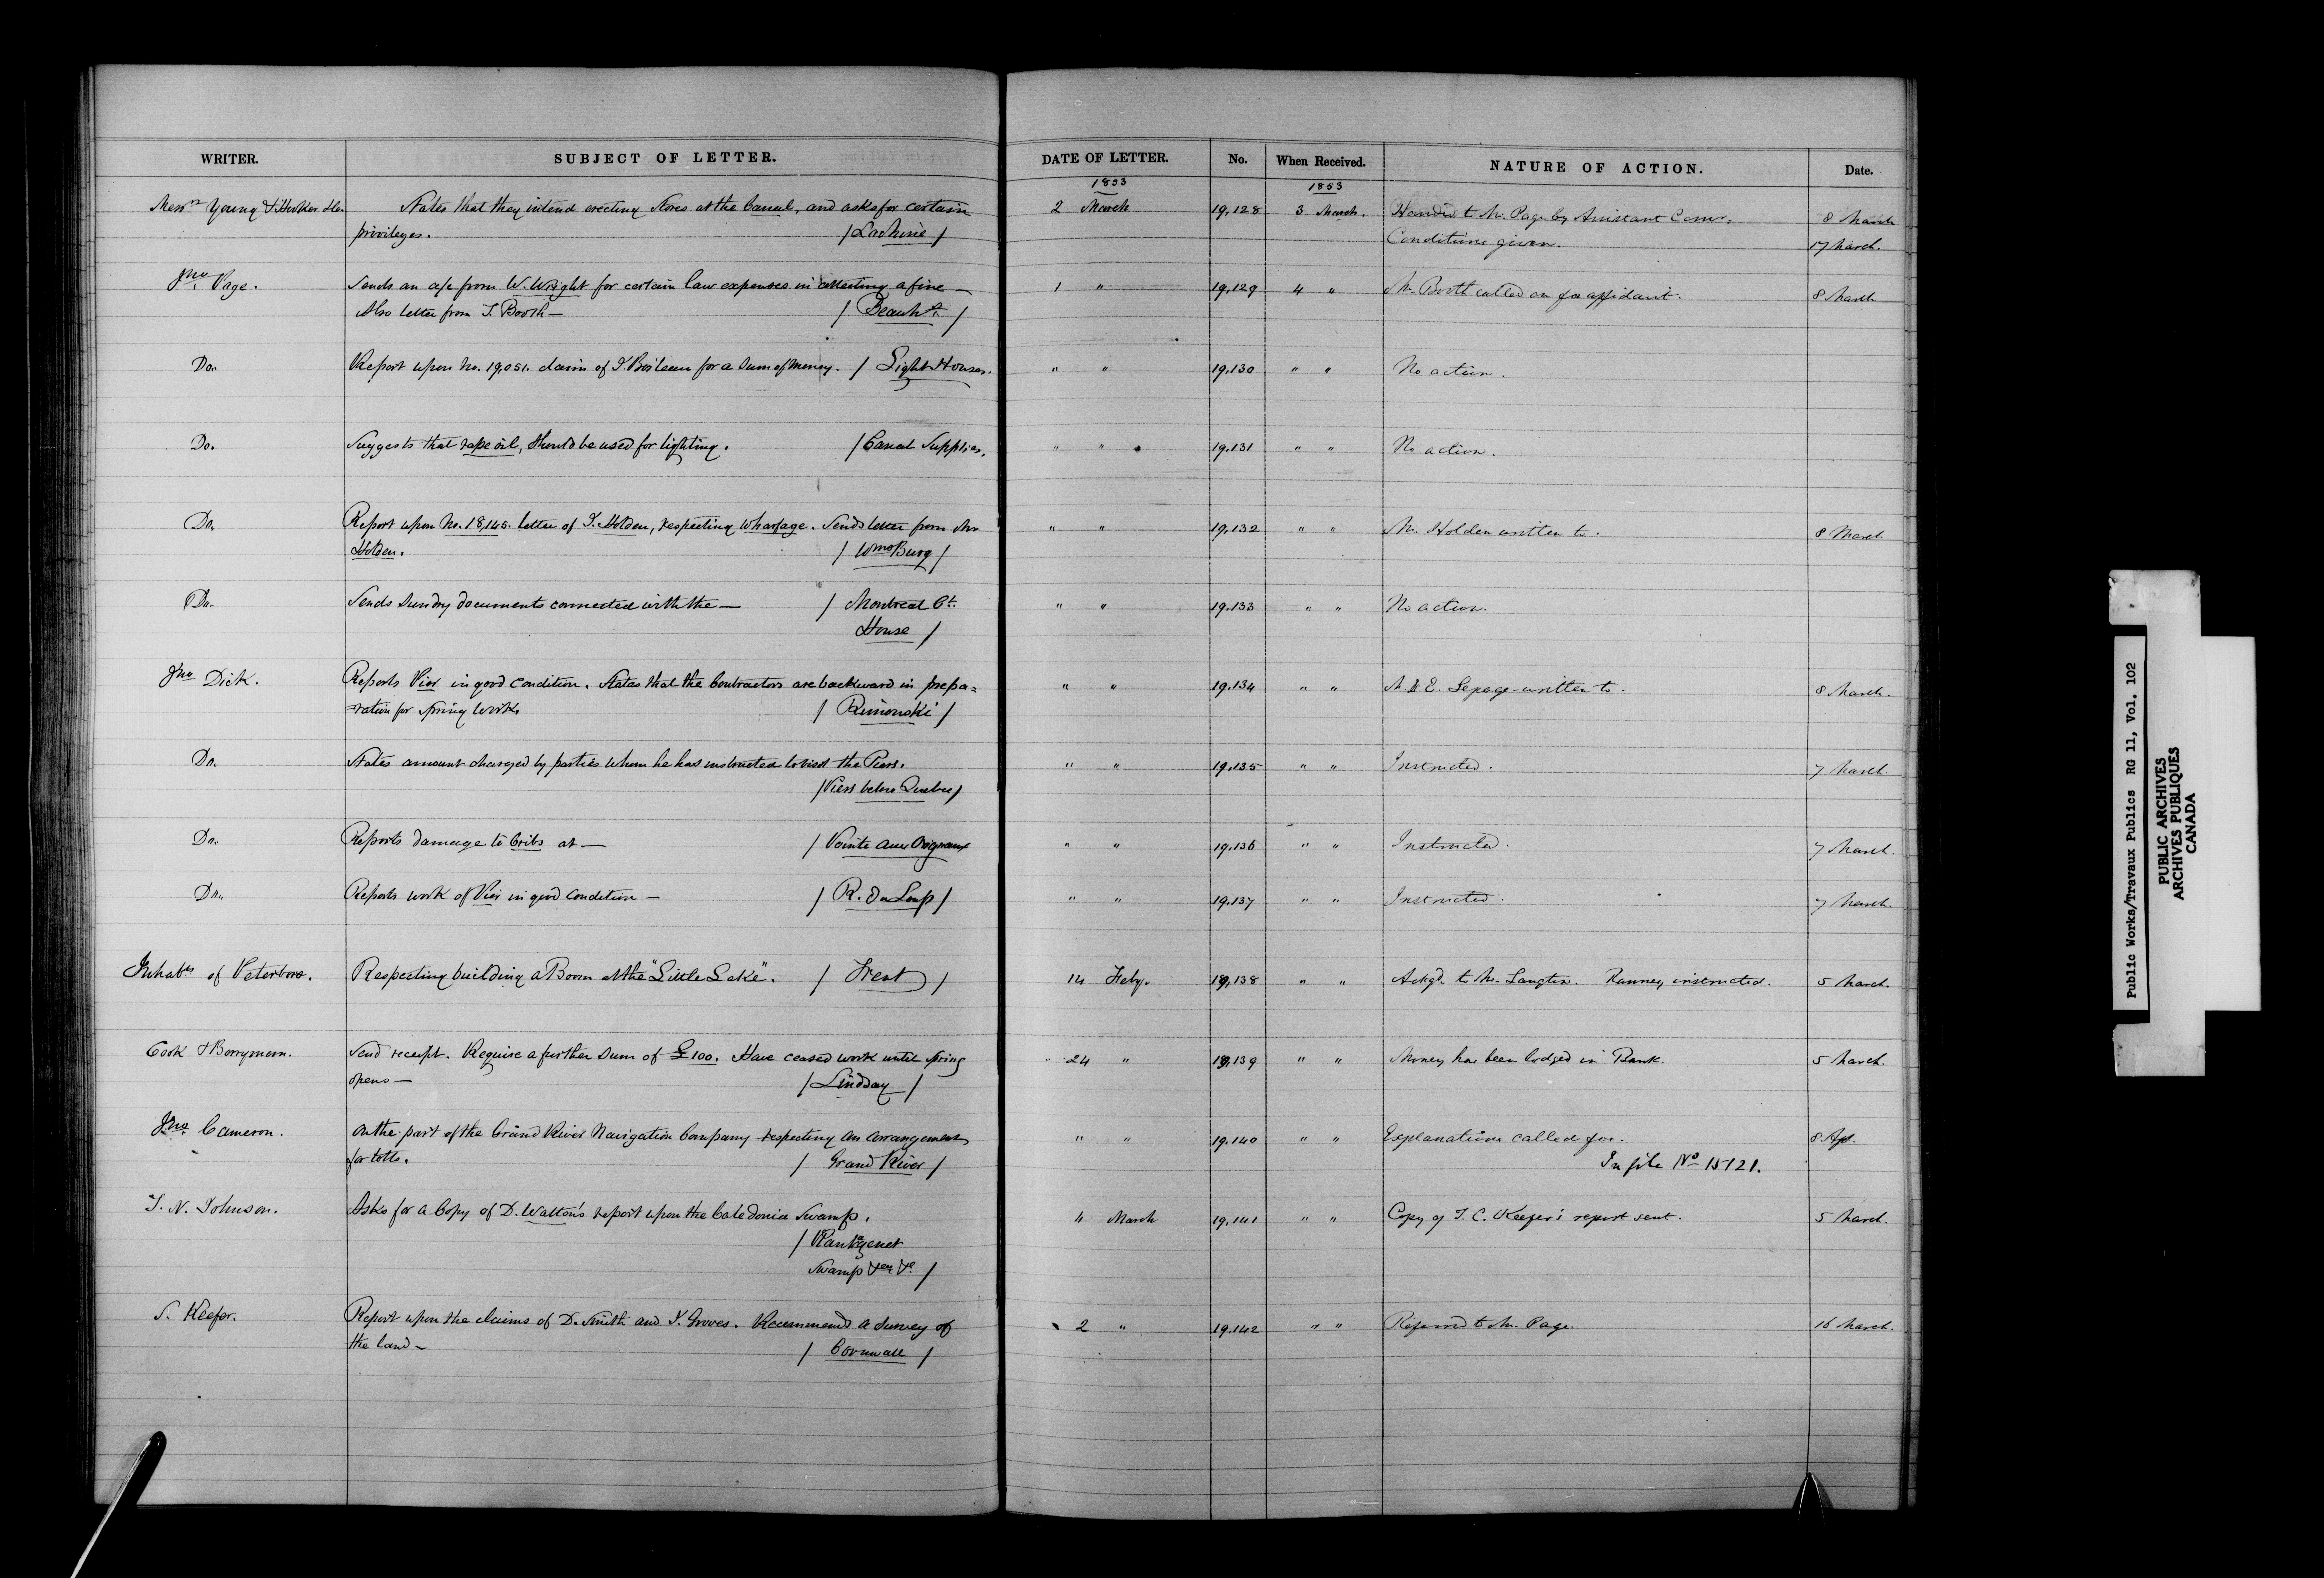 WRITER. SUBJECT OF LETTER. DATE OF LETTER. No. When Received. NATURE OF ACTION. Date.
1853 1853
Messrs Young & States that they intend erecting Stores at the Canal, and asks for certain 2 March 19,128 3 March. Handed to Mr. Page by Assistant Comr. 8 March
privileges. / Lachine / Conditions given. 17 March.
Jno Page. Sends an a/c from W. Wright for certain law expenses in collecting a fine — 1 " 19,129 4 " Mr. Booth called on for affidavit. 8 March
Also letter from J. Booth — / Beauhs. /
Do. Report upon No. 19,051. claim of J. Boileau for a Sum of Money. / Light Houses. " " 19,130 " " No action.
Do. Suggests that rape oil, should be used for lighting. / Canal Supplies. " " 19,131 " " No action.
Do. Report upon No. 18,145. letter of J. Holden, respecting wharfage. Sends letter from Mr " " 19,132 " " Mr. Holden written to. 8 March
Holden. / WmsBurg /
Do. Sends Sundry documents connected with the — / Montreal Ct. " " 19,133 " " No action.
House /
Jno Dick. Reports Pier in good condition. States that the Contractors are backward in prepa= " " 19,134 " " M. & E. Lepage written to. 8 March.
=ration for Spring works / Rimouski /
Do. States amount charged by parties whom he has instructed to visit the Piers. " " 19,135 " " Instructed. 7 March.
/ Piers below Quebec /
Do. Reports damage to Cribs at — / Pointe aux Orignaux " " 19,136 " " Instructed. 7 March.
Do. Reports work of Pier in good condition — / R. Du Loup / " " 19,137 " " Instructed. 7 March.
Inhabts of Peterboro. Respecting building a Boom at the "Little Lake". / Trent / 14 Feby. 19,138 " " Ackgd. to Mr. Langton. Ranney instructed. 5 March.
Cook & Berryman. Send receipt. Require a further Sum of £100. Have ceased work until spring 24 " 19,139 " " Money has been lodged in Bank. 5 March.
opens — / Lindsay /
Jno. Cameron. On the part of the Grand River Navigation Company respecting an arrangement " " 19,140 " " Explanations called for. 8 Ap.
for tolls. / Grand River / In file No 15121.
T. N. Johnson. Asks for a Copy of D. Walton's report upon the Caledonia Swamp. 4 March 19,141 " " Copy of T. C. Keefer's report sent. 5 March.
/ Plantagenet
Swamp &c &c /
S. Keefer. Report upon the claims of D. Smith and J. Groves. Recommends a Survey of 2 " 19,142 " " Referred to Mr. Page. 16 March.
the land — / Cornwall /
Public Works/Travaux Publics RG 11, Vol. 102
PUBLIC ARCHIVES
ARCHIVES PUBLIQUES
CANADA